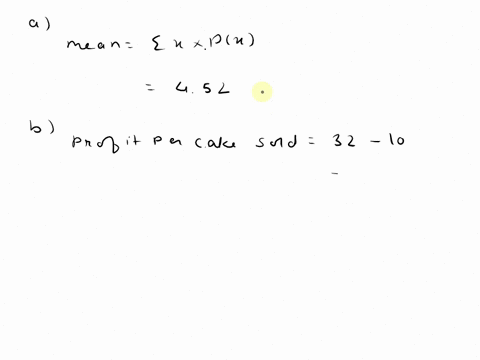 a)
mean = Σ x × P(x)
= 4.52
b)
profit per cake sold = 32 - 10
=